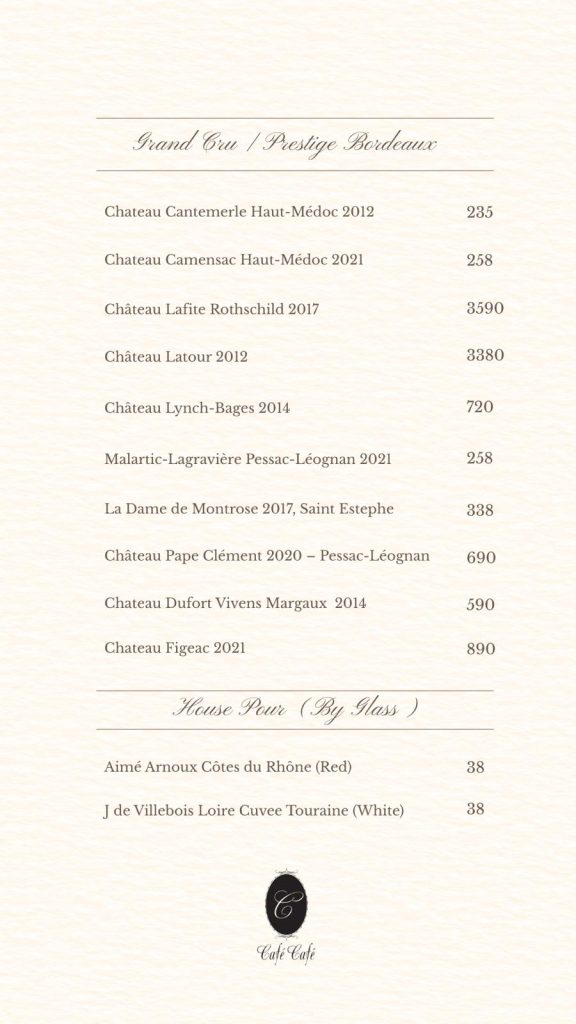 Grand Cru / Prestige Bordeaux
Chateau Cantemerle Haut-Médoc 2012 235
Chateau Camensac Haut-Médoc 2021 258
Château Lafite Rothschild 2017 3590
Château Latour 2012 3380
Château Lynch-Bages 2014 720
Malartic-Lagravière Pessac-Léognan 2021 258
La Dame de Montrose 2017, Saint Estephe 338
Château Pape Clément 2020 – Pessac-Léognan 690
Chateau Dufort Vivens Margaux 2014 590
Chateau Figeac 2021 890
House Pour ( By Glass )
Aimé Arnoux Côtes du Rhône (Red) 38
J de Villebois Loire Cuvee Touraine (White) 38
C
Café Café